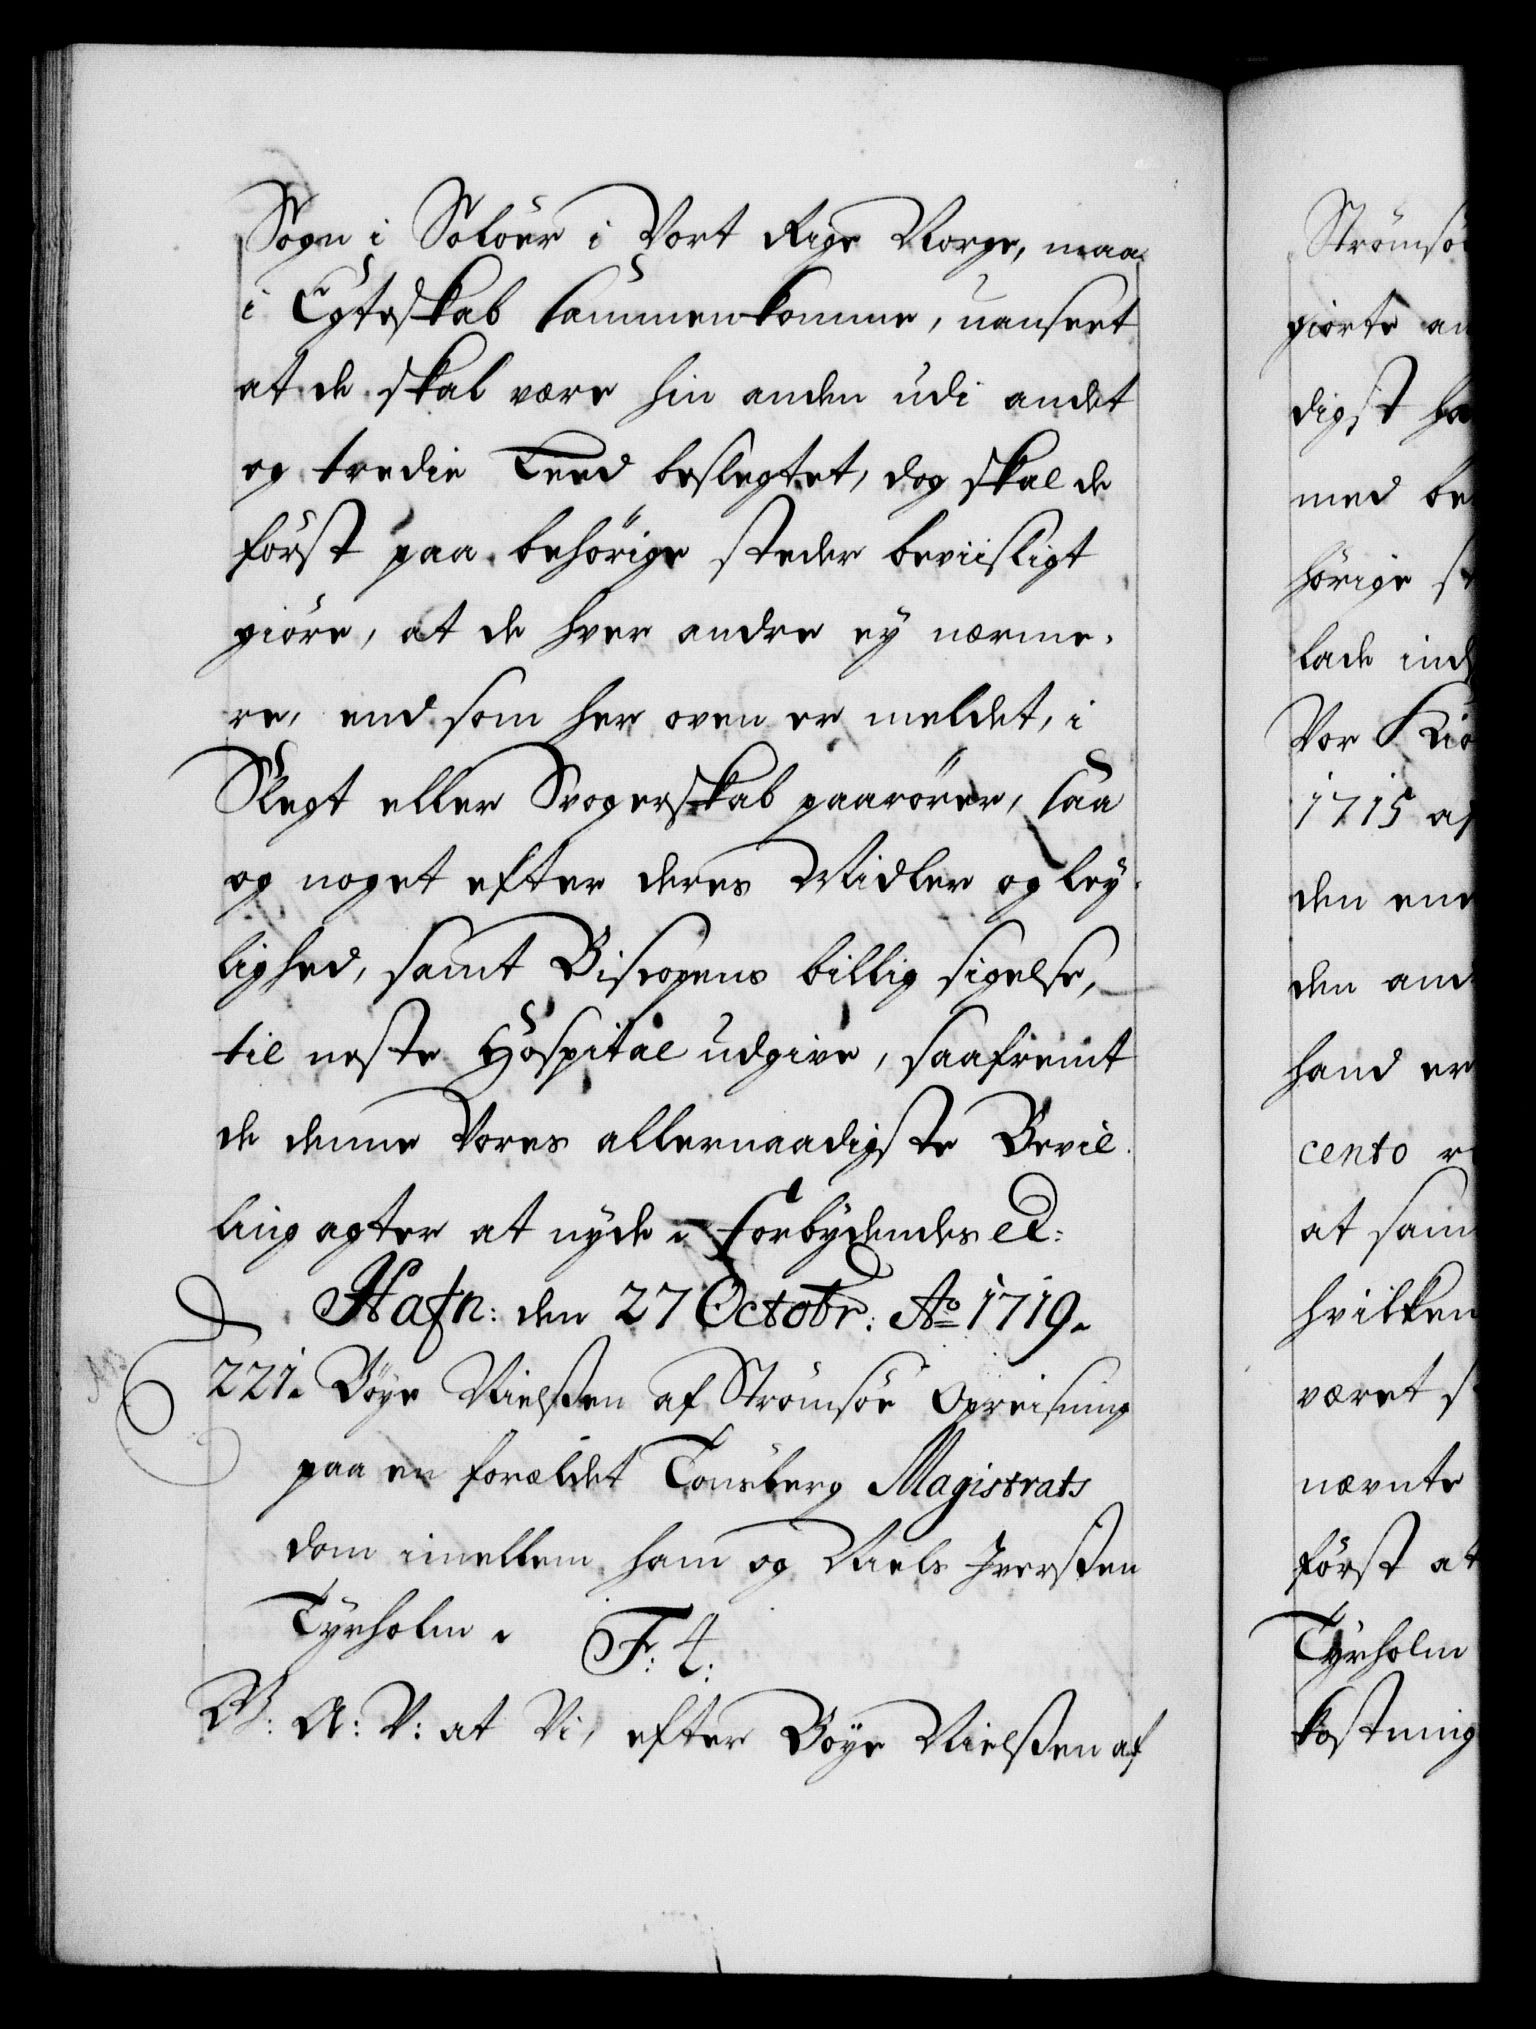 Sogn i Soløer i Vort Rige Norge, maa
i Egteskab sammenkomme, uanseet
at de skal være hin anden udi andet
og tredie Leed beslegtet, dog skal de
först paa behörige steder beviisligt
giöre, at de hver andre ey nærme-
re, end som her oven er meldet, i
Slegt eller Svogerskab paarörer, saa
og noget efter deres Midler og ley-
lighed, samt Biscopens billig sigelse,
til neste Hospital udgive, saafremt
de denne Vores allernaadigste Bevil-
ling agter at nyde. Forbydendes etc:
Hafn: den 27 Octobr: Ao 1719.
221. Böye Nielsen af Strömsöe Opreisning
paa en forældet Tonsberg Magistrats
dom imellem ham og Niels Iversen
Tyrholm. F: 4:
B: A: V: at Vi, efter Böye Nielsen af
Strömsö
giorte an
digst ha
med be
hörige st
lade ind
Vor Kiö
1715 af
den ene
den and
hand er
cento r
at sam
hvilken
været s
nævnte
först at
Tyrholm
kostning